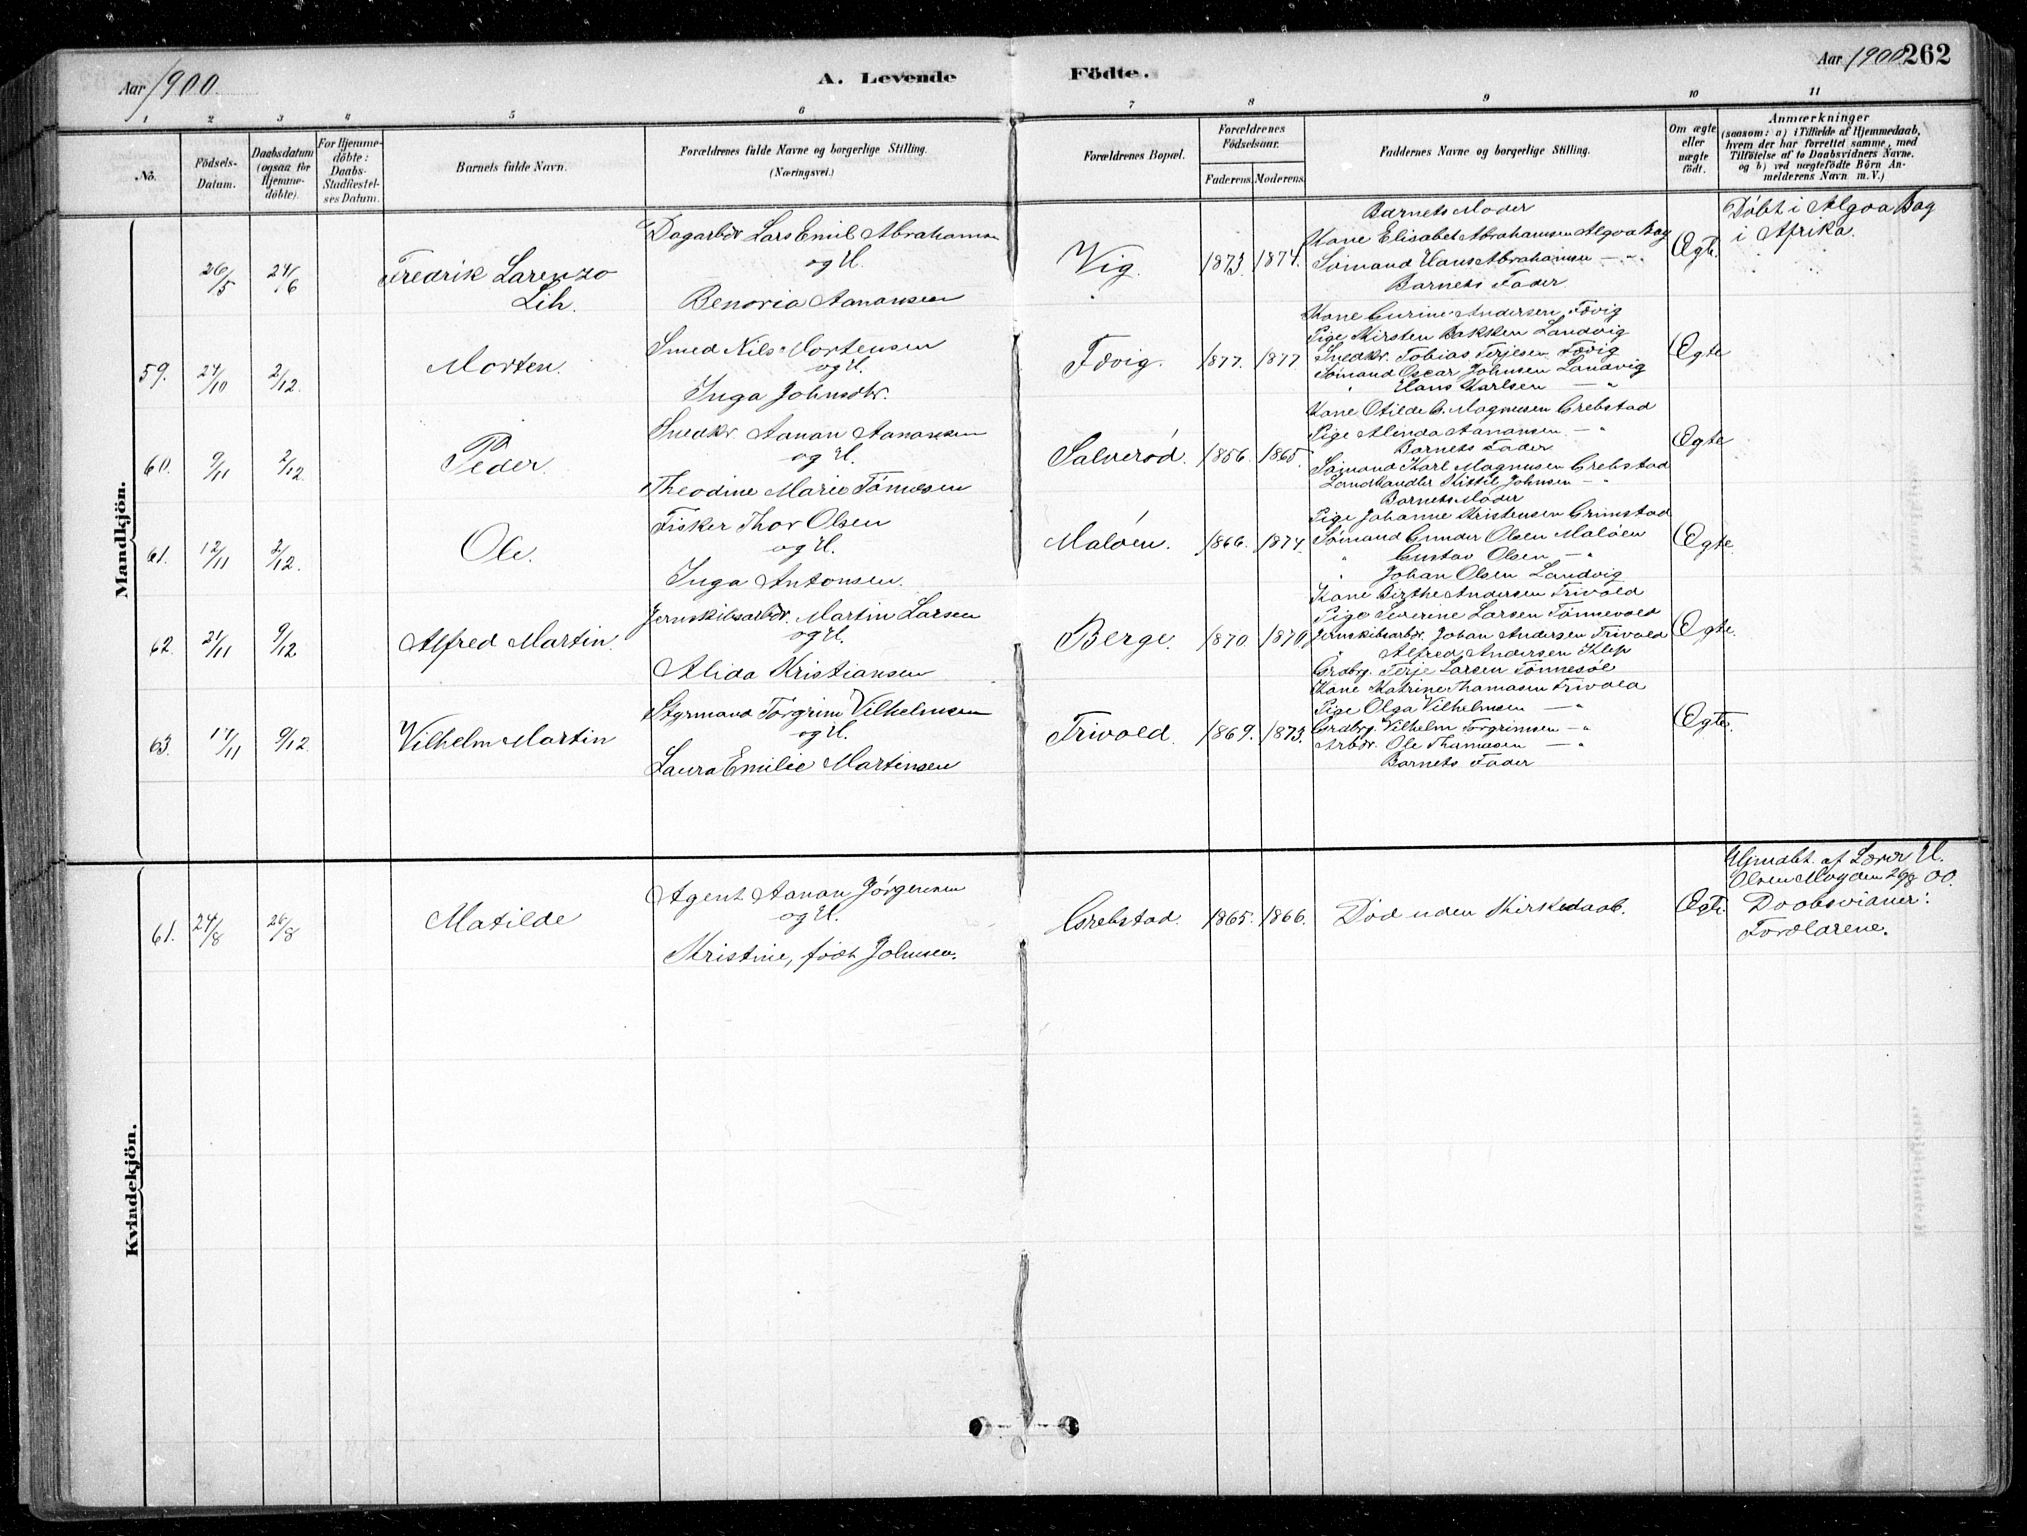 Aar 1900.
A. Levende Födte.
Aar 1900 262
1 2 3 4 5 6 7 8 9 10 11
No.
Födsels-Datum.
Daabsdatum (ogsaa for Hjemme-döbte).
For Hjemme-döbte: Daabs-Stadfæstel-ses Datum.
Barnets fulde Navn.
Forældrenes fulde Navne og borgerlige Stilling.
(Næringsvei.)
Forældrenes Bopæl.
Forældrenes Födselsaar.
Faderens. Moderens.
Faddernes Navne og borgerlige Stilling.
Om ægte eller uægte födt.
Anmærkninger
(saasom: a) i Tilfælde af Hjemmedaab,
hvem der har forrettet samme, med
Tilföielse af to Daabsvidners Navne,
og b) ved uægtefödte Börn An-
melderens Navn m. V.)
Mandkjön.
26/5 24/6 Fredrik Larenzo
Lih.
Dagarbdr Lars Emil Abrahamsen
og H.
Benoria Aanansen
Vig. 1873. 1874.
Barnets Moder
Kone Elisabet Abrahamsen Algoa Bay
Sømand Hans Abrahamsen — „
Barnets Fader
Ægte.
Døbt i Algoa Bay
i Afrika.
59. 24/10 2/12 Morten.
Smed Nils Mortensen
og H.
Inga Johnsdtr.
Fævig. 1877. 1877
Kone Gurine Andersen Fævig
Pige Kirsten Bakken Landvig
Snedkr. Tobias Terjesen Fævig
Sømand Oscar Johnsen Landvig
„ Hans Karlsen — „
Ægte
60. 9/11 2/12 Peder.
Snedkr. Aanan Aanansen
og H.
Theodine Marie Tømesen
Salverød. 1856. 1865.
Kone Otilde G. Magnusen Grebstad
Pige Alinda Aanansen — „
Barnets Fader
Sømand Karl Magnusen Grebstad
Landhandler Kittil Johnsen — „
Ægte
61. 12/11 2/12. Ole.
Fisker Thor Olsen
og H.
Inga Antonsen.
Maløen. 1866. 1874.
Barnets Moder
Pige Johanne Kristensen Grimstad
Sømand Gunder Olsen Maløen
„ Gustav Olsen — „
„ Johan Olsen Landvig
Ægte.
62. 21/11 9/12 Alfred Martin.
Jernskibsarbdr. Martin Larsen
og H.
Alida Kristiansen
Berge. 1870. 1870.
Kone Birthe Andersen Trivold
Pige Severine Larsen Tønnevold
Jernskibsarbdr. Johan Andersen Trivold
„ Alfred Andersen Klep
Grdbrg. Terje Larsen Tønnesøl
Ægte.
63. 17/11 9/12. Vilhelm Martin
Styrmand Torgrim Vilhelmsen
og H.
Laura Emilie Martinsen
Trivold. 1869. 1873.
Kone Katrine Thomasen Trivold
Pige Olga Vilhelmsen — „
Grdbrg. Vilhelm Torgrimsen — „
Arbdr. Ole Thomasen — „
Barnets Fader
Ægte.
Kvindekjön.
61. 24/8 26/8 Matilde
Agent Aanan Jørgensen
og H.
Kristine, født Johnsen.
Grebstad. 1865. 1866.
Død uden Kirkedaab.
Ægte.
Hjmdøbt. af Lærer H.
Olsen Moy den 26/8 00.
Daabsvidner:
Forældrene.